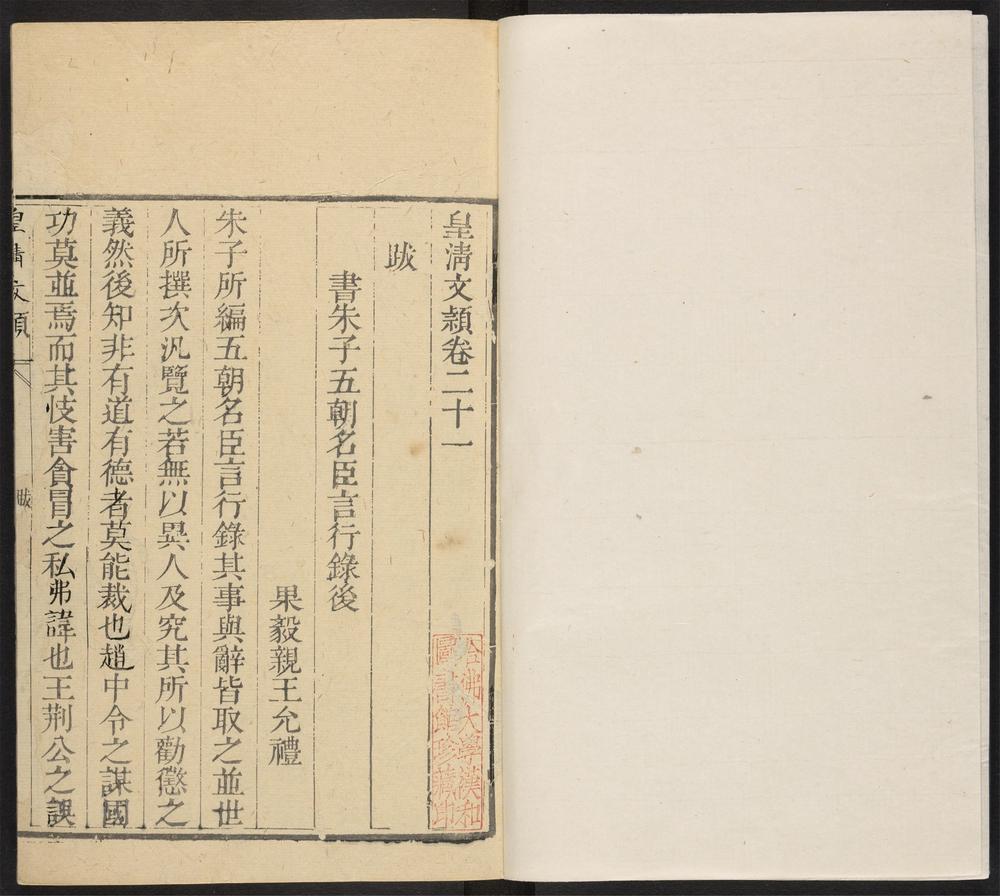 皇淸文穎卷二十一
跋
書朱子五朝名臣言行錄後
果毅親王允禮
朱子所編五朝名臣言行錄其事與辭皆取之並世
人所撰次汎覽之若無以異人及究其所以勸懲之
義然後知非有道有德者莫能裁也趙中令之謀國
功莫並焉而其忮害貪冒之私弗諱也王荆公之誤
皇淸文穎
跋
哈佛大學漢和
圖書館珍藏印